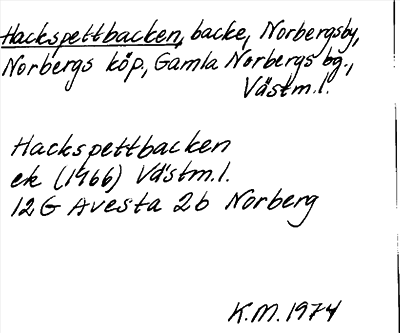 Hackspettbacken, backe, Norbergsby,
Norbergs köp, Gamla Norbergs bg.,
Västm.l.
Hackspettbacken
ek (1966) Västm.l.
12G Avesta 2b Norberg
K.M. 1974